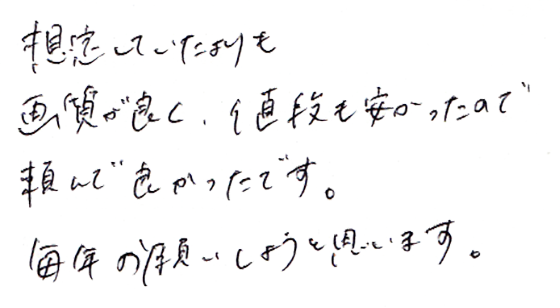 想定していたよりも
画質が良く、値段も安かったので
頼んで良かったです。
毎年お願いしようと思います。